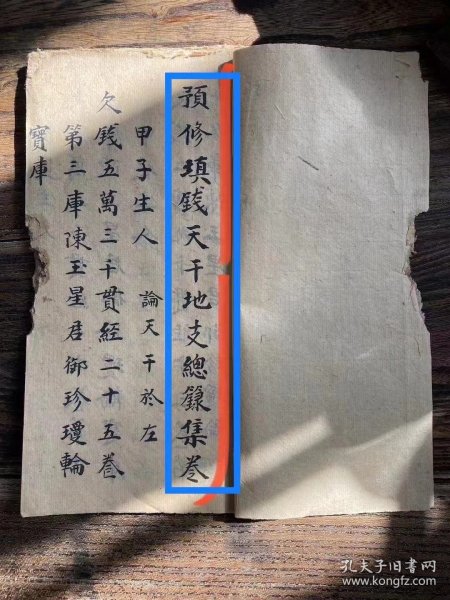 預修填錢天干地支總籙集卷
甲子生人 論天干於左
欠錢五萬三千貫經二十五卷
第三庫陳玉星君御珍瓊輪
寶庫
孔夫子旧书网
www.kongfz.com